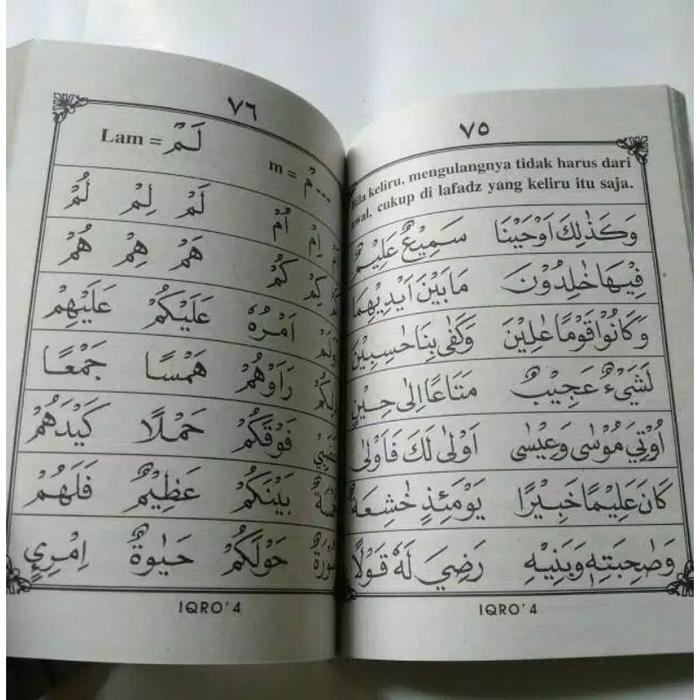 ٧٥
Bila keliru, mengulangnya tidak harus dari
awal, cukup di lafadz yang keliru itu saja.
وَكَذٰلِكَ اَوْحَيْنَا سَمِيْعٌ عَلِيْمٌ
فِيْهَا خٰلِدُوْنَ مَابَيْنَ اَيْدِيْهِمَا
وَكَانُوْا قَوْمًا عٰلِيْنَ وَكَفٰى بِنَا حٰسِبِيْنَ
لَشَيْءٌ عَجِيْبٌ مَتَاعًا اِلٰى حِيْنٍ
اُوْتِيَ مُوْسٰى وَعِيْسٰى اَوْلٰى لَكَ فَاَوْلٰى
كَانَ عَلِيْمًا خَبِيْرًا يَوْمَئِذٍ خٰشِعَةٌ
وَصٰحِبَتِهٖ وَبَنِيْهِ رَضِيَ لَهٗ قَوْلًا
IQRO' 4
٧٦
Lam = لَمْ
m = مْ ...
اِمْ اُمْ لَمْ لِمْ لُمْ
كِمْ كُمْ هَمْ هِمْ هُمْ
اَمْرُهٗ عَلَيْكُمْ عَلَيْهِمْ
رَاَوْهُمْ هَمْسًا جَمْعًا
فَوْقَكُمْ حَمْلًا كَيْدَهُمْ
بَيْنَكُمْ عَظِيْمٌ فَلَهُمْ
حَوْلَكُمْ حَيٰوةٌ اِمْرِئٍ
IQRO' 4